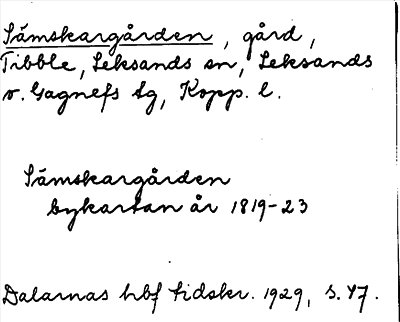 Sämskargården, gård,
Tibble, Leksands sn, Leksands
o. Gagnefs tg, Kopp. l.
Sämskargården
bykartan år 1819-23
Dalarnas hbf tidskr. 1929, s. 47.